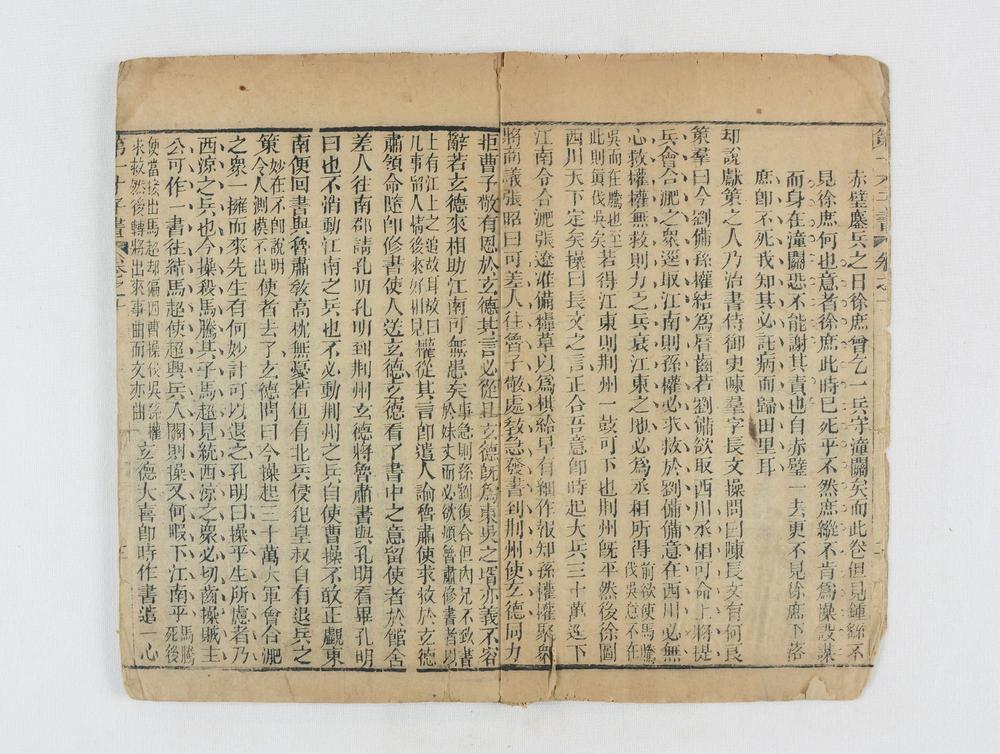 赤壁鏖兵之日徐庶曾乞一兵守潼關矣而此卷但見鍾繇不
見徐庶何也意者徐庶此時已死乎不然庶縱不肯爲操設謀
而身在潼關恐不能謝其責也自赤壁一去更不見徐庶下落
庶卽不死我知其必託病而歸田里耳
却說獻策之人乃治書侍御史陳羣字長文操問曰陳長文有何良
策羣曰今劉備孫權結爲唇齒若劉備欲取西川丞相可命上將提
兵會合淝之衆逕取江南則孫權必求救於劉備備意在西川必無
心救權權無救則力乏兵衰江東之地必爲丞相所得前欲使馬騰伐吳意不在
吳而在騰也至此則眞伐吳矣若得江東則荊州一鼓可下也荊州旣平然後徐圖
西川天下定矣操曰長文之言正合吾意卽時起大兵三十萬逕下
江南令合淝張遼准備糧草以爲供給早有細作報知孫權權聚衆
將商議張昭曰可差人往魯子敬處敎急發書到荊州使玄德同力
拒曹子敬有恩於玄德其言必從且玄德旣爲東吳之壻亦義不容
辭若玄德來相助江南可無患矣事急則孫劉復合但內兄不致書於妹丈而必欲煩魯肅修書者以
上有江上之追故耳故曰凡事留人情後來好相見權從其言卽遣人諭魯肅使求救於玄德
肅領命隨卽修書使人送玄德玄德看了書中之意留使者於館舍
差人往南郡請孔明孔明到荊州玄德將魯肅書與孔明看畢孔明
曰也不消動江南之兵也不必動荊州之兵自使曹操不敢正覷東
南便回書與魯肅敎高枕無憂若但有北兵侵犯皇叔自有退兵之
策妙在不卽說明令人測摸不出使者去了玄德問曰今操起三十萬大軍會合淝
之衆一擁而來先生有何妙計可以退之孔明曰操平生所慮者乃
西涼之兵也今操殺馬騰其子馬超見統西涼之衆必切齒操賊主
公可作一書往結馬超使超興兵入關則操又何暇下江南乎馬騰死後
便當接出馬超却偏因曹操伐吳孫權求救然後轉將出來事曲而文亦曲玄德大喜卽時作書遣一心
第一才子書 卷之十